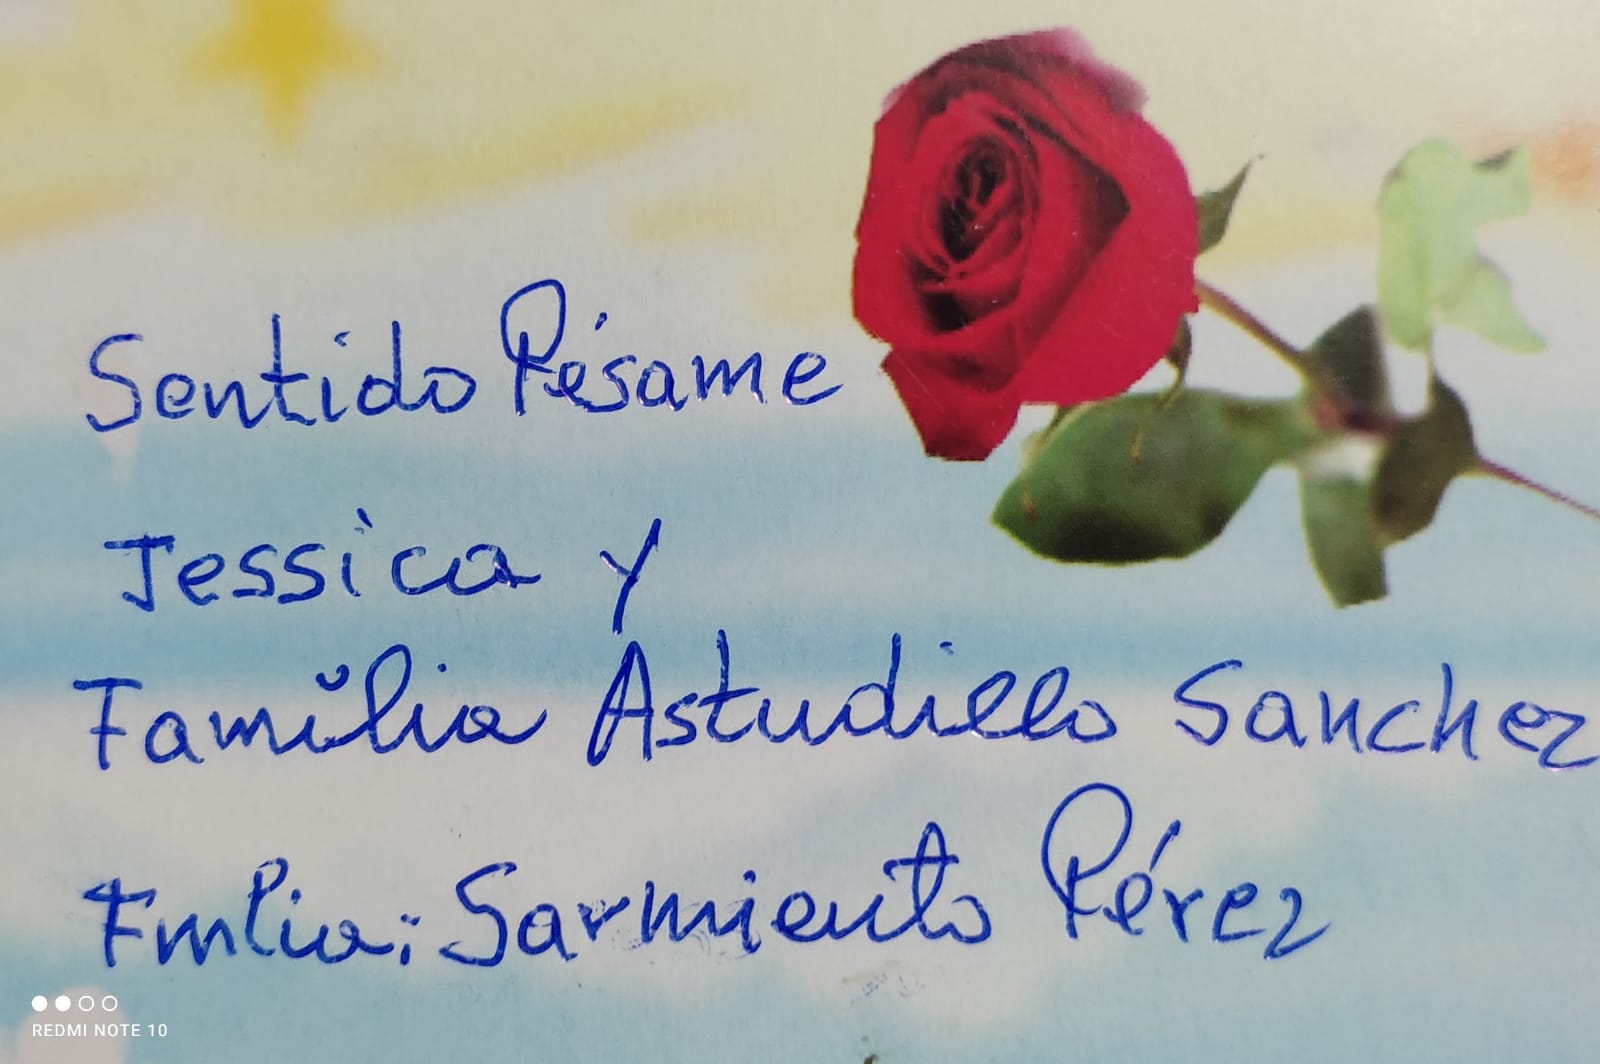 Sentido Pésame
Jessica y
Família Astudillo Sanchez
Fmlia: Sarmiento Pérez
REDMI NOTE 10